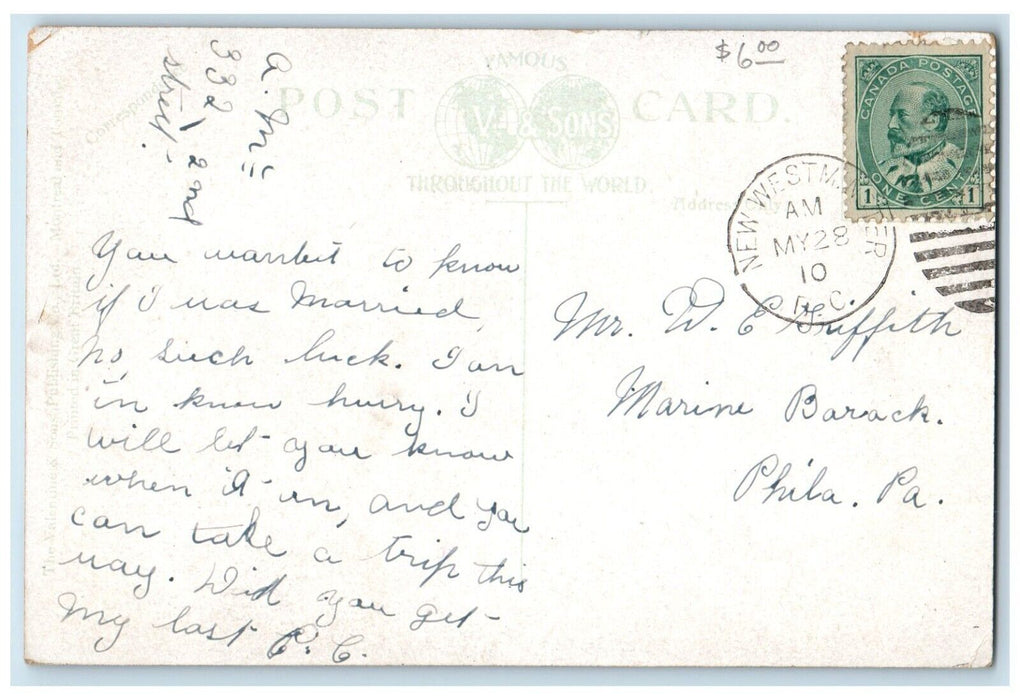 $6.00
FAMOUS
POST CARD.
V & SONS
THROUGHOUT THE WORLD.
Address Only
CANADA POSTAGE
ONE CENT
1 1
NEW WESTMINSTER
AM
MY 28
10
B.C.
332 2nd
street.
You wantit to know
if I was Married
no such luck. I am
in know hurry. I
will let you know
when it
and you
can take a trip this
way. Did you get
My last P. C.
Mr. W. E. Griffith
Marine Barack.
Phila. Pa.
The Valentine & Sons Publishing Co., Ltd. Montreal and Toronto
Printed in Great Britain